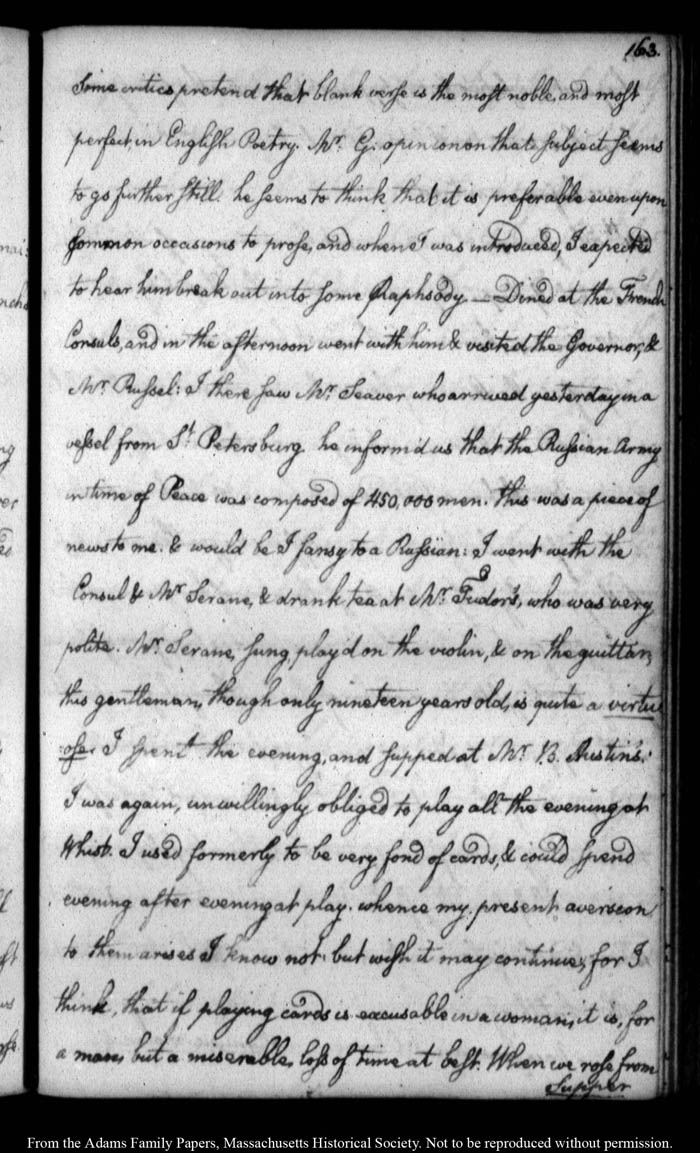 163.
Some critics pretend that blank verse is the most noble, and most
perfect, in English Poetry. Mr. G. opinion on that subject seems
to go further still. he seems to think that it is preferable even upon
common occasions to prose, and when I was introduced, I expected
to hear him break out into some Rhapsody — Dined at the French
Consuls, and in the afternoon went with him & visited the Governor, &
Mr. Russel: I there saw Mr. Seaver who arrived yesterday in a
vessel from St. Petersburg. he inform'd us that the Russian Army
in time of Peace was composed of 450,000 men. this was a piece of
news to me. & would be I fansy to a Russian: I went with the
Consul & Mr. Serane, & drank tea at Mr. Tudor's, who was very
polite. Mr. Serane, sung, play'd on the violin, & on the guittar,
this gentleman, though only nineteen years old, is quite a virtu
oso. I spent the evening, and supped at Mr. B. Austin's.
I was again, unwillingly obliged to play all the evening at
Whist. I used formerly to be very fond of cards, & could spend
evening after evening at play. whence my present aversion
to them arises I know not but wish it may continue, for I
think, that if playing cards is excusable in a woman, it is, for
a man, but a miserable loss of time at best. When we rose from
Supper
From the Adams Family Papers, Massachusetts Historical Society. Not to be reproduced without permission.